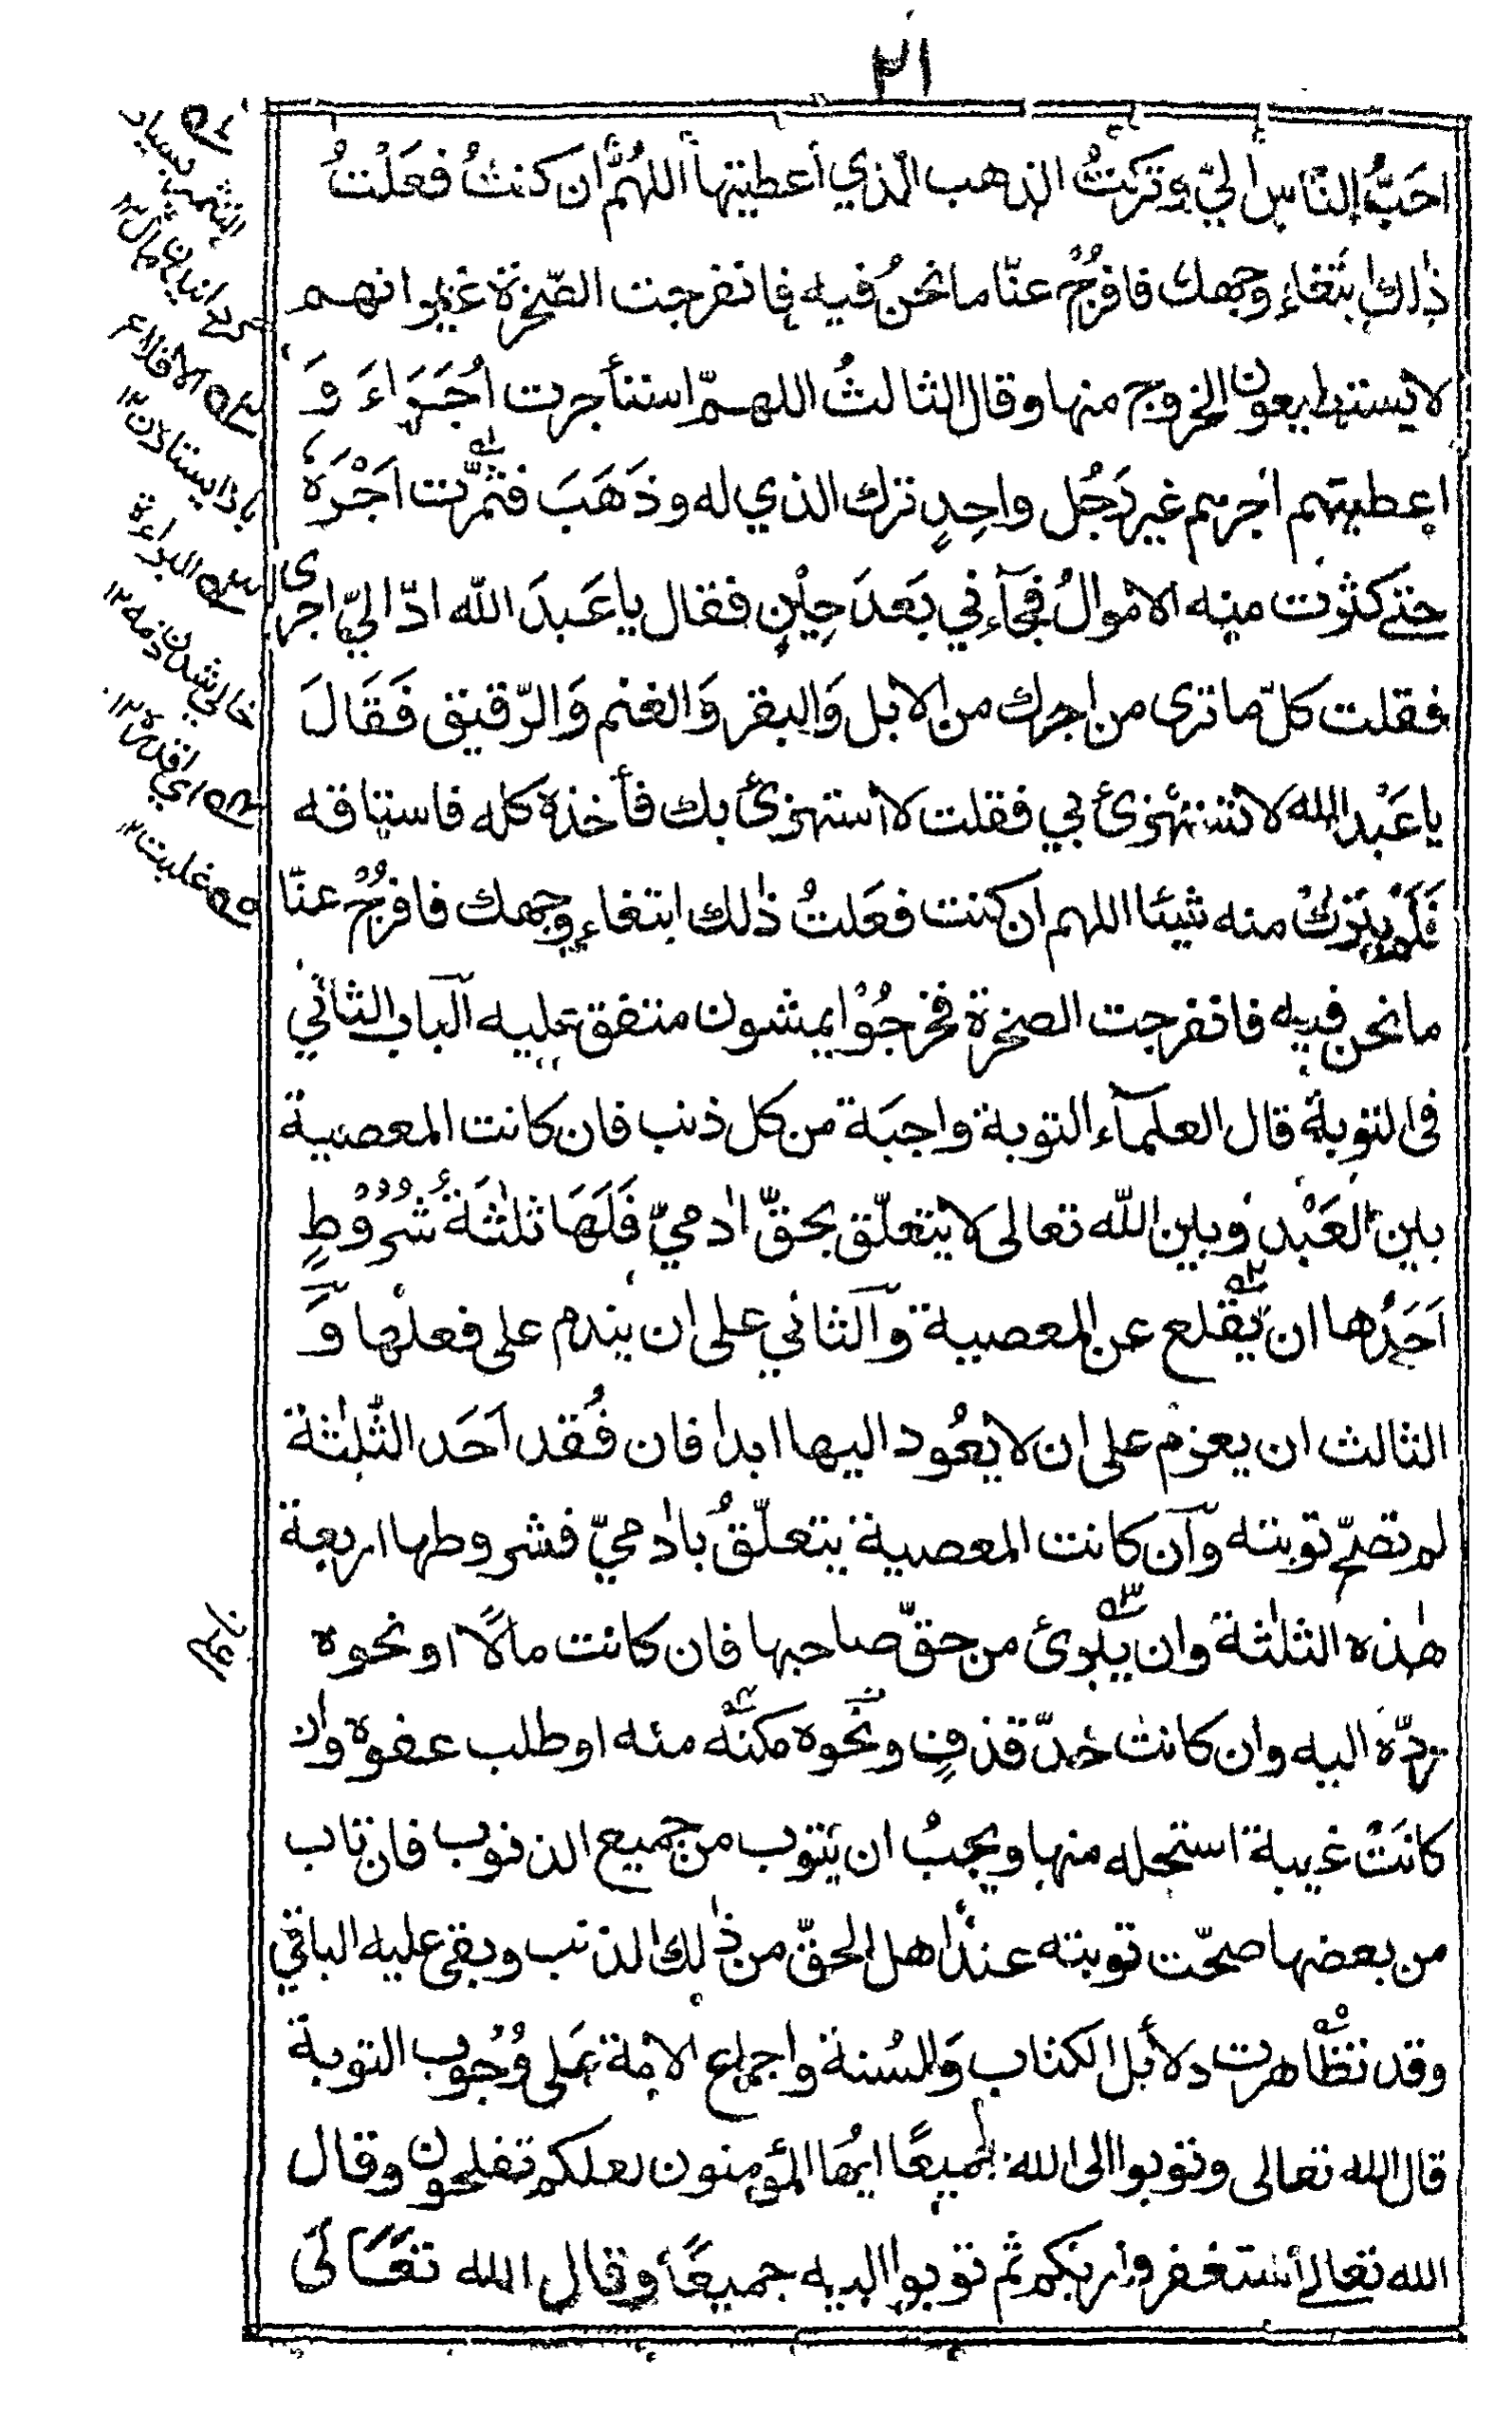 ٢١
احَبُّ النّاس اليّ وتركتُ الذهب الّذي أعطيتها اللهُمَّ ان كنتُ فعَلْتُ
ذٰلك ابتغاء وجهك فافرُجْ عنّا مانحنُ فيه فانفرجت الصّخرة غير انهم
لايستطيعون الخروج منها وقال الثالثُ اللهمّ استأجرت اُجَرَاءَ وَ
اعطيتهم اجرهم غير رَجُل واحِدٍ ترك الذي له وذَهَبَ فثمّرت اَجْرَهٗ
حتے كثرت منه الاموالُ فجآءني بَعَدَ حِيْنٍ فقال ياعَبدَ اللّه ادّ اليّ اجرى
فقلت كلّ ماترى من اجرك من الابل وَالبقر وَالغنم وَالرّقيق فَقَالَ
ياعَبْد الله لاتستهْزئ بي فقلت لا أستهزئ بك فأخذه كله فاستاقه
فَلَمْ يترك منه شيئا اللهم ان كنت فعَلتُ ذٰلك ابتغاء وجهك فافرُجْ عنّا
مانحن فيه فانفرجت الصخرة فخرجُوْا يمشون متفق عليه الباب الثاني
فى التوبة قال العلمآء التوبة واجبَة من كل ذنب فان كانت المعصية
بين العَبْد وبين اللّه تعالى لايتعلّق بحقّ اٰدميّ فَلَهَا ثلٰثَةُ شُرُوْطٍ
اَحَدُها ان يّقلع عن المعصية وآلثاني على ان يندم على فعلها وَ
الثالث ان يعزم على ان لايعُود اليها ابدا فان فُقد اَحَد الثّلٰثة
لم تصحّ توبته وآن كانت المعصية يتعلّقُ باٰدميّ فشروطها اربعة
هٰذه الثلٰثة وان يبرئ من حقّ صاحبها فان كانت مالًا او نحوه
ردّه اليه وان كانت حدّ قذفٍ ونحوه مكنه منه او طلب عفوه وان
كانَتْ غيبة استحله منها ويجبُ ان يتوب من جميع الذنوب فان تاب
من بعضها صحّت توبته عند اهل الحقّ من ذٰلك الذنب وبقى عليه الباقي
وقد تظاهرت دلائل الكتاب وَالسُنة واجماع الامة عَلى وُجُوب التوبة
قال الله تعالى وتوبوا الى الله جميعًا ايّها المؤمنون لعلكم تفلحون وقال
الله تعالى أستغفروا ربكم ثم توبوا اليه جميعًا وقال الله تعَالَى
التثمير بسيار
كردانيدن مال ١٢
الاقلاع
بازايستادن ١٢
البراءة
خالي شدن ذمه ١٢
اي اقدره ١٢
غلبت ١٢